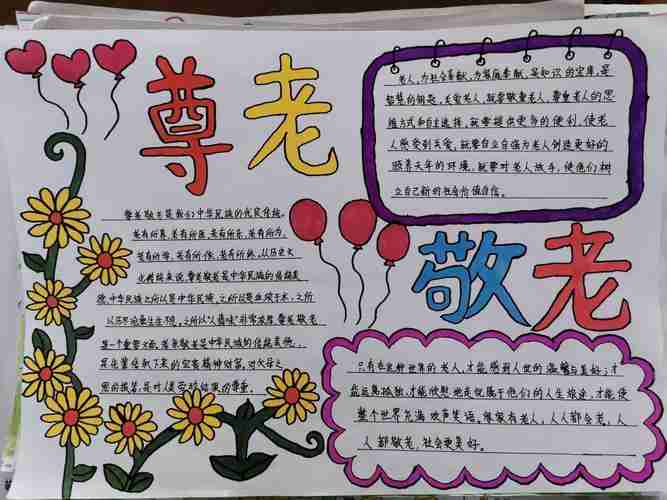 尊老
老人,为社会奉献,为家庭奉献,是知识的宝库,是
智慧的钥匙,关爱老人,就要敬重老人,尊重老人的思
维方式和自主选择,就要提供更多的便利,使老
人感受到关爱,就要自立自强为老人创造更好的
颐养天年的环境,就要对老人放手,使他们树
立自己新的社会价值自信。
尊老敬老是我们中华民族的优良传统。
老有所养,老有所医,老有所乐,老有所为,
老有所学,老有所依,老有所教,从历史文
化传统来说,尊老敬老是中华民族的传统美
德,中华民族之所以是中华民族,之所以是血浓于水,之所
以历尽沧桑生生不息,之所以"人情味"非常浓厚,尊老敬老
是一个重要支点,尊老敬老是中华民族的传统美德,
先辈传承下来的宝贵精神财富,对父母之
恩的报答,是对人类劳动结果的尊重。
敬老
只有在长幼世界的老人,才能感到人世的温馨与美好;才
能远离孤独,才能欣慰地走完属于他们的人生旅途,才能使
整个世界充满欢声笑语。谁家有老人,人人都会老,人
人都敬老,社会更美好。